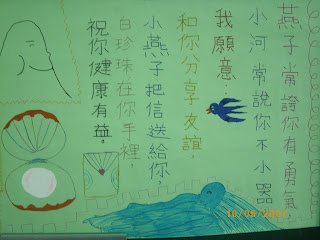 燕子常誇你有勇氣
小河常說你不小器
我願意…
和你分享友誼，
小燕子把信送給你，
白珍珠在你手裡，
祝你健康有益。
10/05/2007